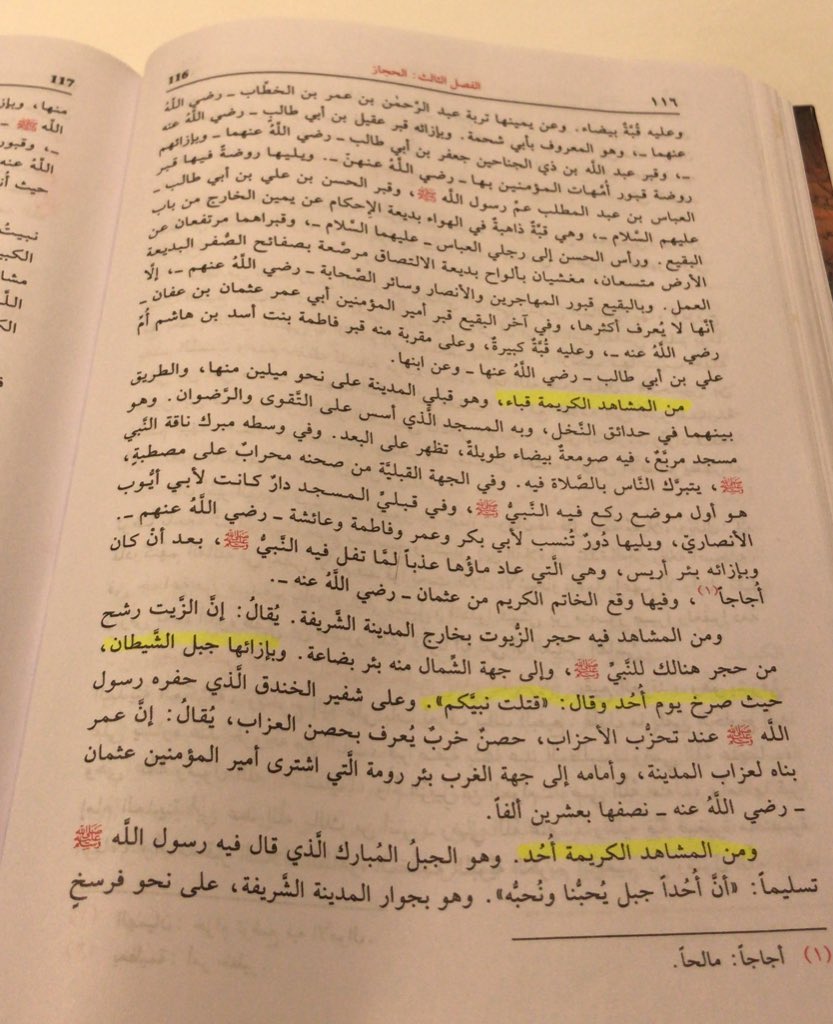 116 الفصل الثالث: الحجاز ١١٦
وعليه قبّةٌ بيضاء. وعن يمينها تربة عبد الرَّحمٰن بن عمر بن الخطّاب ـ رضي اللَّهُ
عنهما ـ، وهو المعروف بأبي شحمة. وبإزائه قبر عقيل بن أبي طالب ـ رضي اللَّهُ عنه
ـ، وقبر عبد اللَّه بن ذي الجناحين جعفر بن أبي طالب ـ رضي اللَّهُ عنهما ـ وبإزائهم
روضة قبور أمّهات المؤمنين بها ـ رضي اللَّهُ عنهنّ ـ. ويليها روضةٌ فيها قبر
العباس بن عبد المطلب عمّ رسول اللَّه ﷺ، وقبر الحسن بن علي بن أبي طالب ـ
عليهم السَّلام ـ، وهي قبّةٌ ذاهبةٌ في الهواء بديعة الإحكام عن يمين الخارج من باب
البقيع. ورأس الحسن إلى رجلي العباس ـ عليهما السَّلام ـ، وقبراهما مرتفعان عن
الأرض متسعان، مغشيان بألواح بديعة الالتصاق مرصّعة بصفائح الصُّفر البديعة
العمل. وبالبقيع قبور المهاجرين والأنصار وسائر الصَّحابة ـ رضي اللَّهُ عنهم ـ، إلّا
أنّها لا يُعرف أكثرها، وفي آخر البقيع قبر أمير المؤمنين أبي عمر عثمان بن عفان ـ
رضي اللَّهُ عنه ـ، وعليه قُبّةٌ كبيرةٌ، وعلى مقربة منه قبر فاطمة بنت أسد بن هاشم أمّ
علي بن أبي طالب ـ رضي اللَّهُ عنها ـ وعن ابنها.
من المشاهد الكريمة قباء، وهو قبلي المدينة على نحو ميلين منها، والطريق
بينهما في حدائق النَّخل، وبه المسجد الَّذي أسس على التَّقوى والرَّضوان. وهو
مسجد مربَّعٌ، فيه صومعةٌ بيضاء طويلةٌ، تظهر على البعد. وفي وسطه مبرك ناقة النَّبي
ﷺ، يتبرَّك النَّاس بالصَّلاة فيه. وفي الجهة القبليَّة من صحنه محرابٌ على مصطبةٍ،
هو أول موضع ركع فيه النَّبيُّ ﷺ، وفي قبليّ المسجد دارٌ كانت لأبي أيُّوب
الأنصاريّ، ويليها دُورٌ تُنسب لأبي بكر وعمر وفاطمة وعائشة ـ رضي اللَّهُ عنهم ـ.
وبإزائه بئر أريس، وهي الَّتي عاد ماؤُها عذباً لمَّا تفل فيه النَّبيُّ ﷺ، بعد أنْ كان
أُجاجاً(١)، وفيها وقع الخاتم الكريم من عثمان ـ رضي اللَّهُ عنه ـ.
ومن المشاهد فيه حجر الزُّيوت بخارج المدينة الشَّريفة. يُقالُ: إنَّ الزَّيت رشح
من حجر هنالك للنَّبيِّ ﷺ، وإلى جهة الشّمال منه بئر بضاعة. وبإزائها جبل الشَّيطان،
حيث صرخ يوم أُحد وقال: «قتلت نبيّكم». وعلى شفير الخندق الَّذي حفره رسول
اللَّه ﷺ عند تحزُّب الأحزاب، حصنٌ خربٌ يُعرف بحصن العزاب، يُقالُ: إنَّ عمر
بناه لعزاب المدينة، وأمامه إلى جهة الغرب بئر رومة الَّتي اشترى أمير المؤمنين عثمان
ـ رضي اللَّهُ عنه ـ نصفها بعشرين ألفاً.
ومن المشاهد الكريمة أُحُد. وهو الجبلُ المُبارك الَّذي قال فيه رسول اللَّه ﷺ
تسليماً: «أنَّ أُحُداً جبل يُحبُّنا ونُحبُّه». وهو بجوار المدينة الشَّريفة، على نحو فرسخٍ
(١) أجاجاً: مالحاً.
117
منها،
اللَّه ﷺ
ـ، وقبور
اللَّهُ عنه
حيث